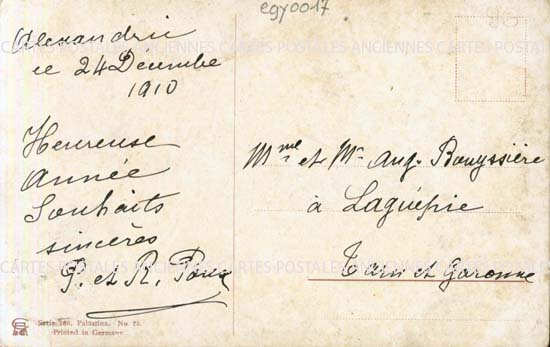 egy0017
Alexandrie
le 24 Décembre
1910
Heureuse
Année
Souhaits
sincères
P. et R.
Mme et Mr Aug. Bouyssière
à Laguépie
Tarn et Garonne
CARTES POSTALES ANCIENNES CARTES POSTALES ANCIENNES
CARTES POSTALES ANCIENNES CARTES POSTALES ANCIENNES
Serie 746. Palästina. No. 75.
Printed in Germany